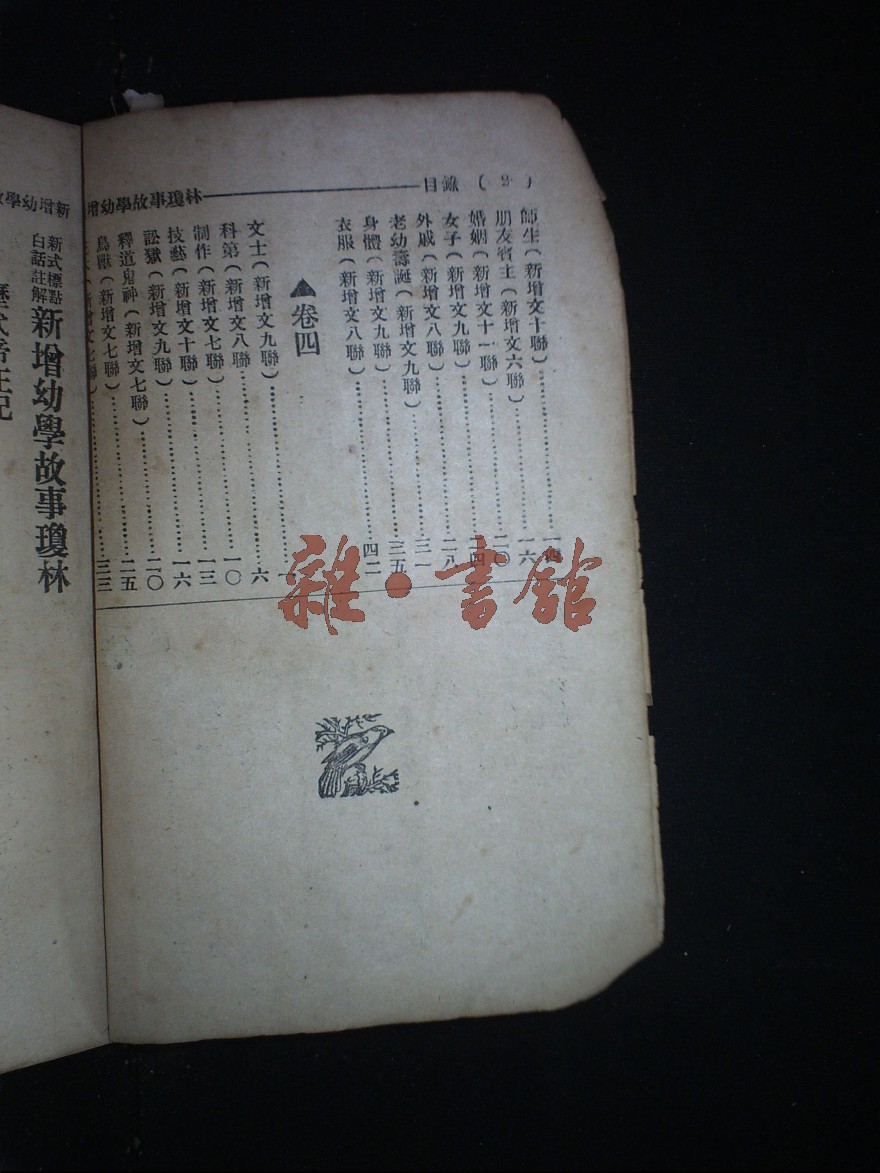 增幼學故事瓊林 目錄 ( 2 )
師生(新增文十聯)……一四
朋友賓主(新增文六聯)……一六
婚姻(新增文十一聯)……二〇
女子(新增文九聯)……二四
外戚(新增文八聯)……二八
老幼壽誕(新增文九聯)……三一
身體(新增文九聯)……三五
衣服(新增文八聯)……四二
▲卷四
文士(新增文九聯)……一
科第(新增文八聯)……六
制作(新增文七聯)……一〇
技藝(新增文十聯)……一三
訟獄(新增文九聯)……一六
釋道鬼神(新增文七聯)……二〇
鳥獸(新增文七聯)……二五
(新增文七聯)……三三
新增幼學故
新式標點
白話註解
新增幼學故事瓊林
歷代帝王紀
雜·書館